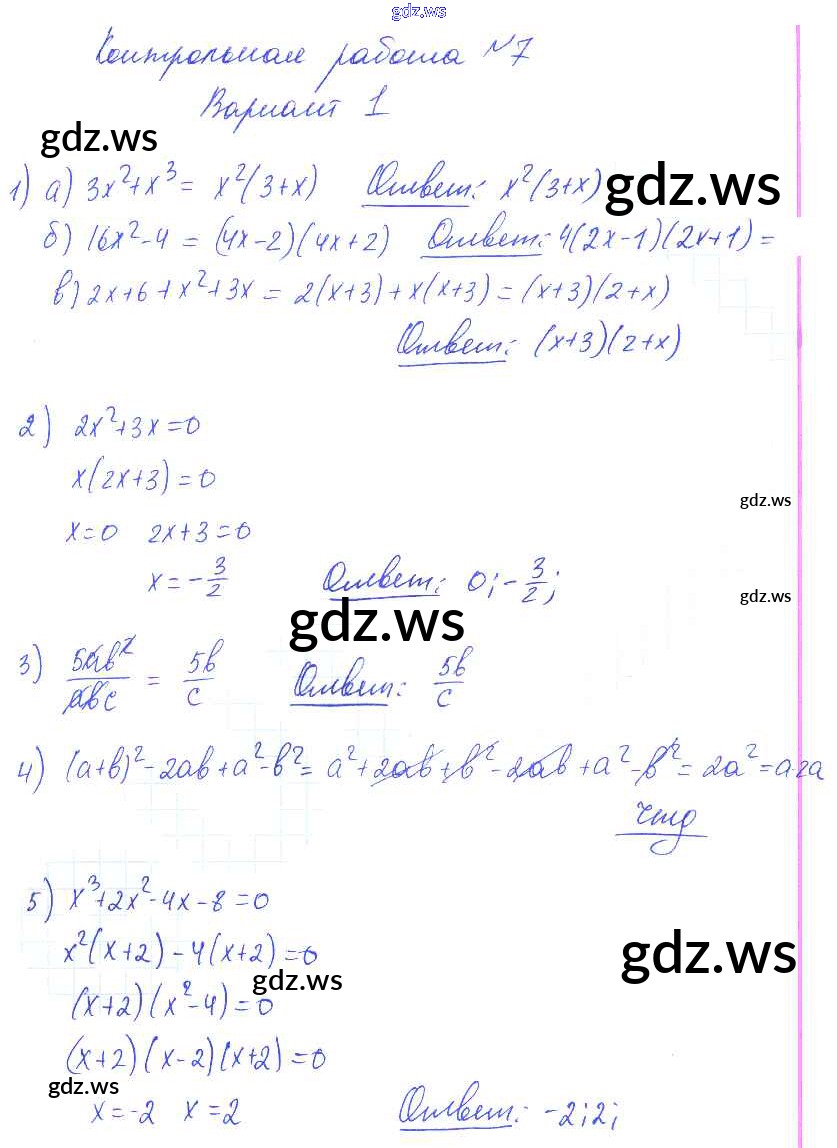 gdz.ws
Контрольная работа №7
Вариант 1
gdz.ws
1) а) 3x²+x³ = x²(3+x) Ответ: x²(3+x) gdz.ws
б) 16x²-4 = (4x-2)(4x+2) Ответ: 4(2x-1)(2x+1) =
в) 2x+6+x²+3x = 2(x+3)+x(x+3) = (x+3)(2+x)
Ответ: (x+3)(2+x)
2) 2x²+3x=0
x(2x+3)=0
gdz.ws
x=0 2x+3=0
x=-3/2 Ответ: 0;-3/2;
gdz.ws
gdz.ws
3) 5ab²/abc = 5b/c Ответ: 5b/c
4) (a+b)²-2ab+a²-b² = a²+2ab+b²-2ab+a²-b² = 2a² = a·2a
чтд
5) x³+2x²-4x-8=0
x²(x+2)-4(x+2)=0
gdz.ws
gdz.ws
(x+2)(x²-4)=0
(x+2)(x-2)(x+2)=0
gdz.ws
x=-2 x=2 Ответ: -2;2;